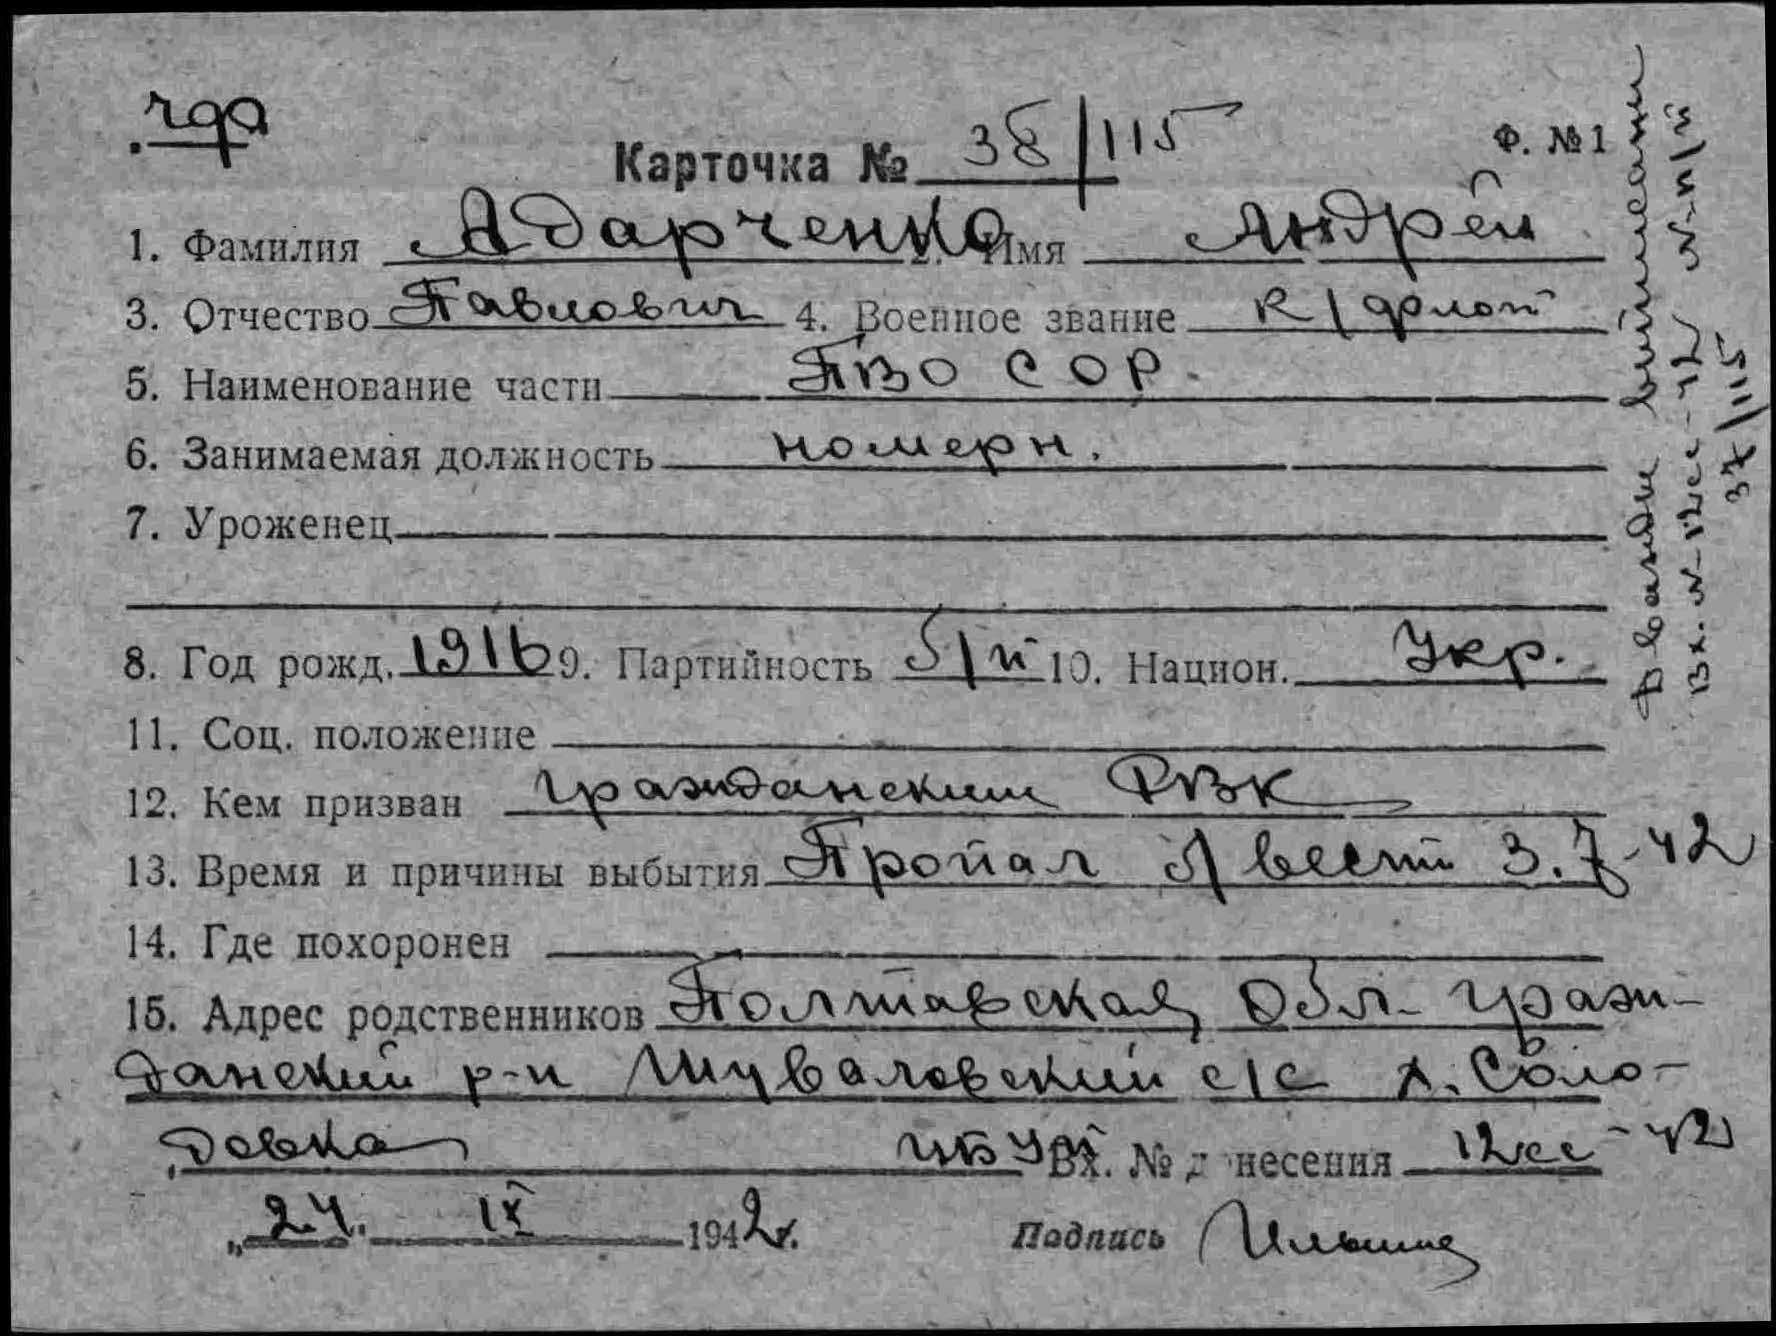 чда
Карточка № 38/115 Ф. № 1
1. Фамилия Адарченко 2. Имя Андрей
3. Отчество Павлович 4. Военное звание к/флот
5. Наименование части ПВО СОР.
6. Занимаемая должность номерн.
7. Уроженец
8. Год рожд. 1916 9. Партийность б/п 10. Национ. Укр.
11. Соц. положение
12. Кем призван Гражданским РВК
13. Время и причины выбытия Пропал б/вести 3.7-42
14. Где похоронен
15. Адрес родственников Полтавская Обл. Граж-
данский р-н Шуваловский с/с х. Соло-
довка Вх. № донесения 12сс-42
„24." IX 1942 г. Подпись
вписан
Вх. №-12сс-42 №-п/п
37/115